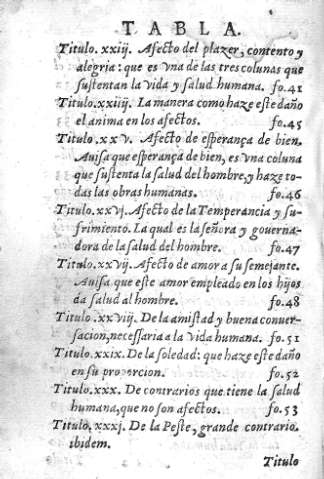 TABLA.
Titulo.xxiij. Afecto del plazer, contento y
alegria: que es vna de las tres colunas que
sustentan la vida y salud humana. fo.41
Titulo.xxiiij. La manera como haze este daño
el anima en los afectos. fo.45
Titulo.xxv. Afecto de esperança de bien.
Auisa que esperança de bien, es vna coluna
que sustenta la salud del hombre, y haze to-
das las obras humanas. fo.46
Titulo.xxvj. Afecto de la Temperancia y su-
frimiento. La qual es la señora y gouerna-
dora de la salud del hombre. fo.47
Titulo.xxvij. Afecto de amor a su semejante.
Auisa que este amor empleado en los hijos
da salud al hombre. fo.48
Titulo.xxviij. De la amistad y buena conuer-
sacion, necessaria a la vida humana. fo.51
Titulo.xxix. De la soledad: que haze este daño
en su proporcion. fo.52
Titulo.xxx. De contrarios que tiene la salud
humana, que no son afectos. fo.53
Titulo.xxxj. De la Peste, grande contrario.
ibidem.
Titulo